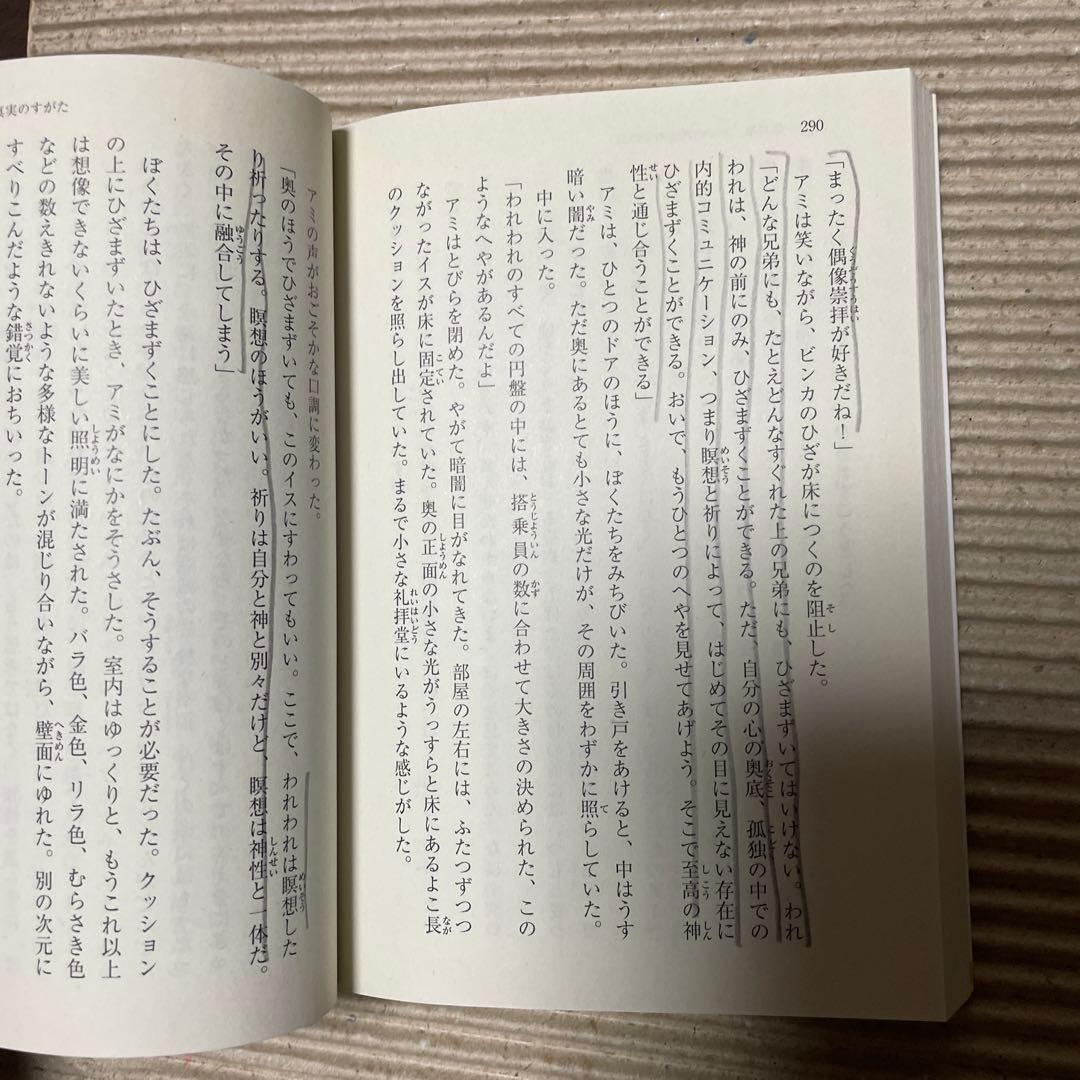 290
「まったく偶像崇拝が好きだね！」
アミは笑いながら、ビンカのひざが床につくのを阻止した。
「どんな兄弟にも、たとえどんなすぐれた上の兄弟にも、ひざまずいてはいけない。われ
われは、神の前にのみ、ひざまずくことができる。ただ、自分の心の奥底、孤独の中での
内的コミュニケーション、つまり瞑想と祈りによって、はじめてその目に見えない存在に
ひざまずくことができる。おいで、もうひとつのへやを見せてあげよう。そこで至高の神
性と通じ合うことができる」
アミは、ひとつのドアのほうに、ぼくたちをみちびいた。引き戸をあけると、中はうす
暗い闇だった。ただ奥にあるとても小さな光だけが、その周囲をわずかに照らしていた。
中に入った。
「われわれのすべての円盤の中には、搭乗員の数に合わせて大きさの決められた、この
ようなへやがあるんだよ」
アミはとびらを閉めた。やがて暗闇に目がなれてきた。部屋の左右には、ふたつずつつ
ながったイスが床に固定されていた。奥の正面の小さな光がうっすらと床にあるよこ長
のクッションを照らし出していた。まるで小さな礼拝堂にいるような感じがした。
真実のすがた
アミの声がおごそかな口調に変わった。
「奥のほうでひざまずいても、このイスにすわってもいい。ここで、われわれは瞑想した
り祈ったりする。瞑想のほうがいい。祈りは自分と神と別々だけど、瞑想は神性と一体だ。
その中に融合してしまう」
ぼくたちは、ひざまずくことにした。たぶん、そうすることが必要だった。クッション
の上にひざまずいたとき、アミがなにかをそうさした。室内はゆっくりと、もうこれ以上
は想像できないくらいに美しい照明に満たされた。バラ色、金色、リラ色、むらさき色
などの数えきれないような多様なトーンが混じり合いながら、壁面にゆれた。別の次元に
すべりこんだような錯覚におちいった。